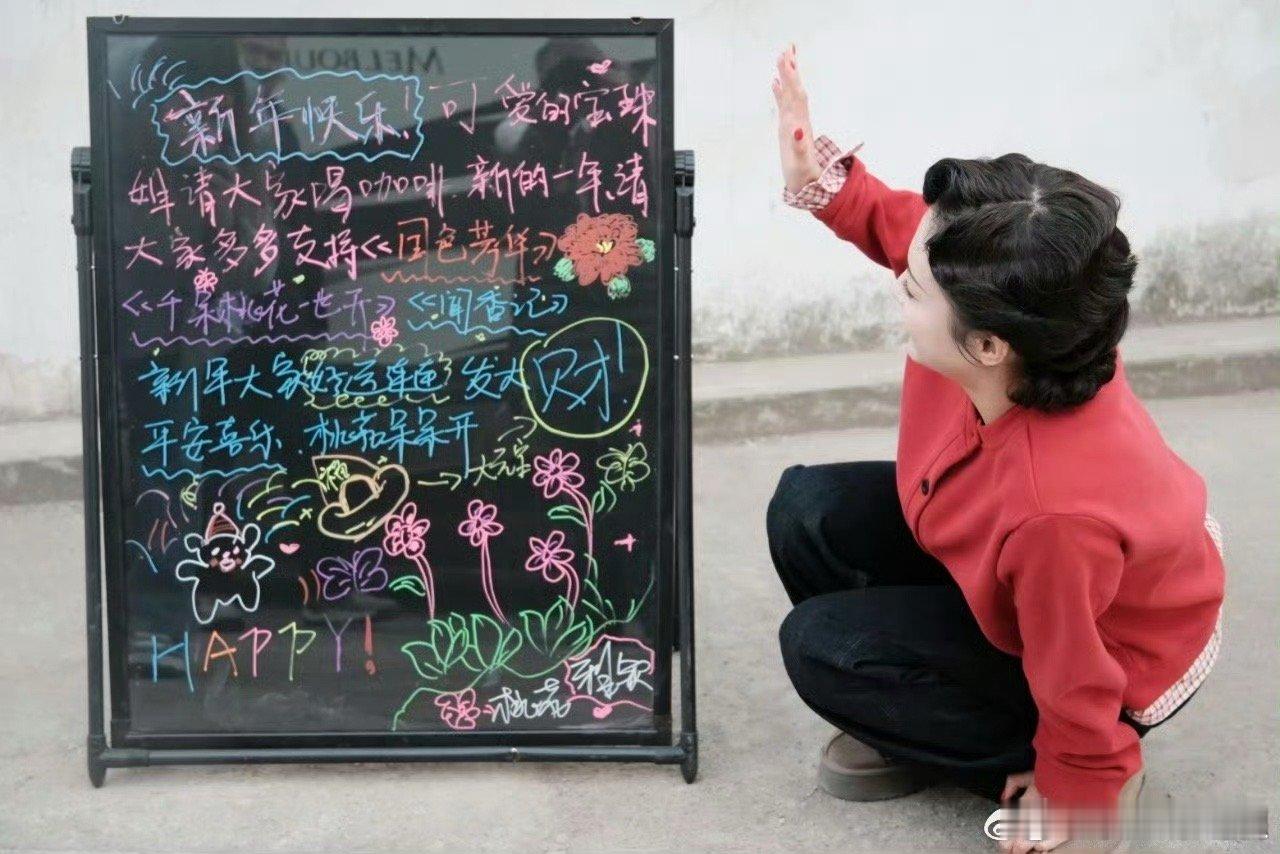 MELBOU
新年快乐! 可爱的宝珠
姐请大家喝咖啡.新的一年,请
大家多多支持<<国色芳华>>
<<千朵桃花一世开>> <<闻香记>>
新年大家好运连连 发大财!
平安喜乐、桃花朵朵开
福 → 大元宝
HAPPY!
桃花